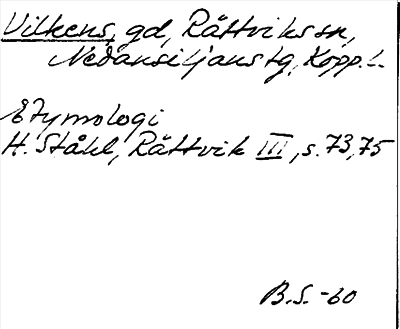 Vilkens, gd, Rättviks sn,
Nedansiljans tg, Kopp. l.
Etymologi
H. Ståhl, Rättvik III, s. 73, 75
B.S. -60